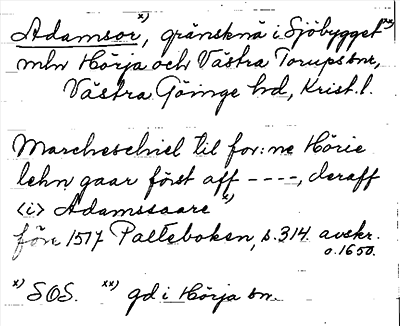 Adamsor x), gränsknä i Sjöbygget xx)
mln Hörja och Västra Torups snr,
Västra Göinge hd, Krist. l.
Marcheschiel til for:ne Hörie
lehn gaar först aff ----, deraff
<i> Adamssaare x)
före 1517 Palteboken, s. 314 avskr.
o. 1650.
x) SOS. xx) gd i Hörja sn.